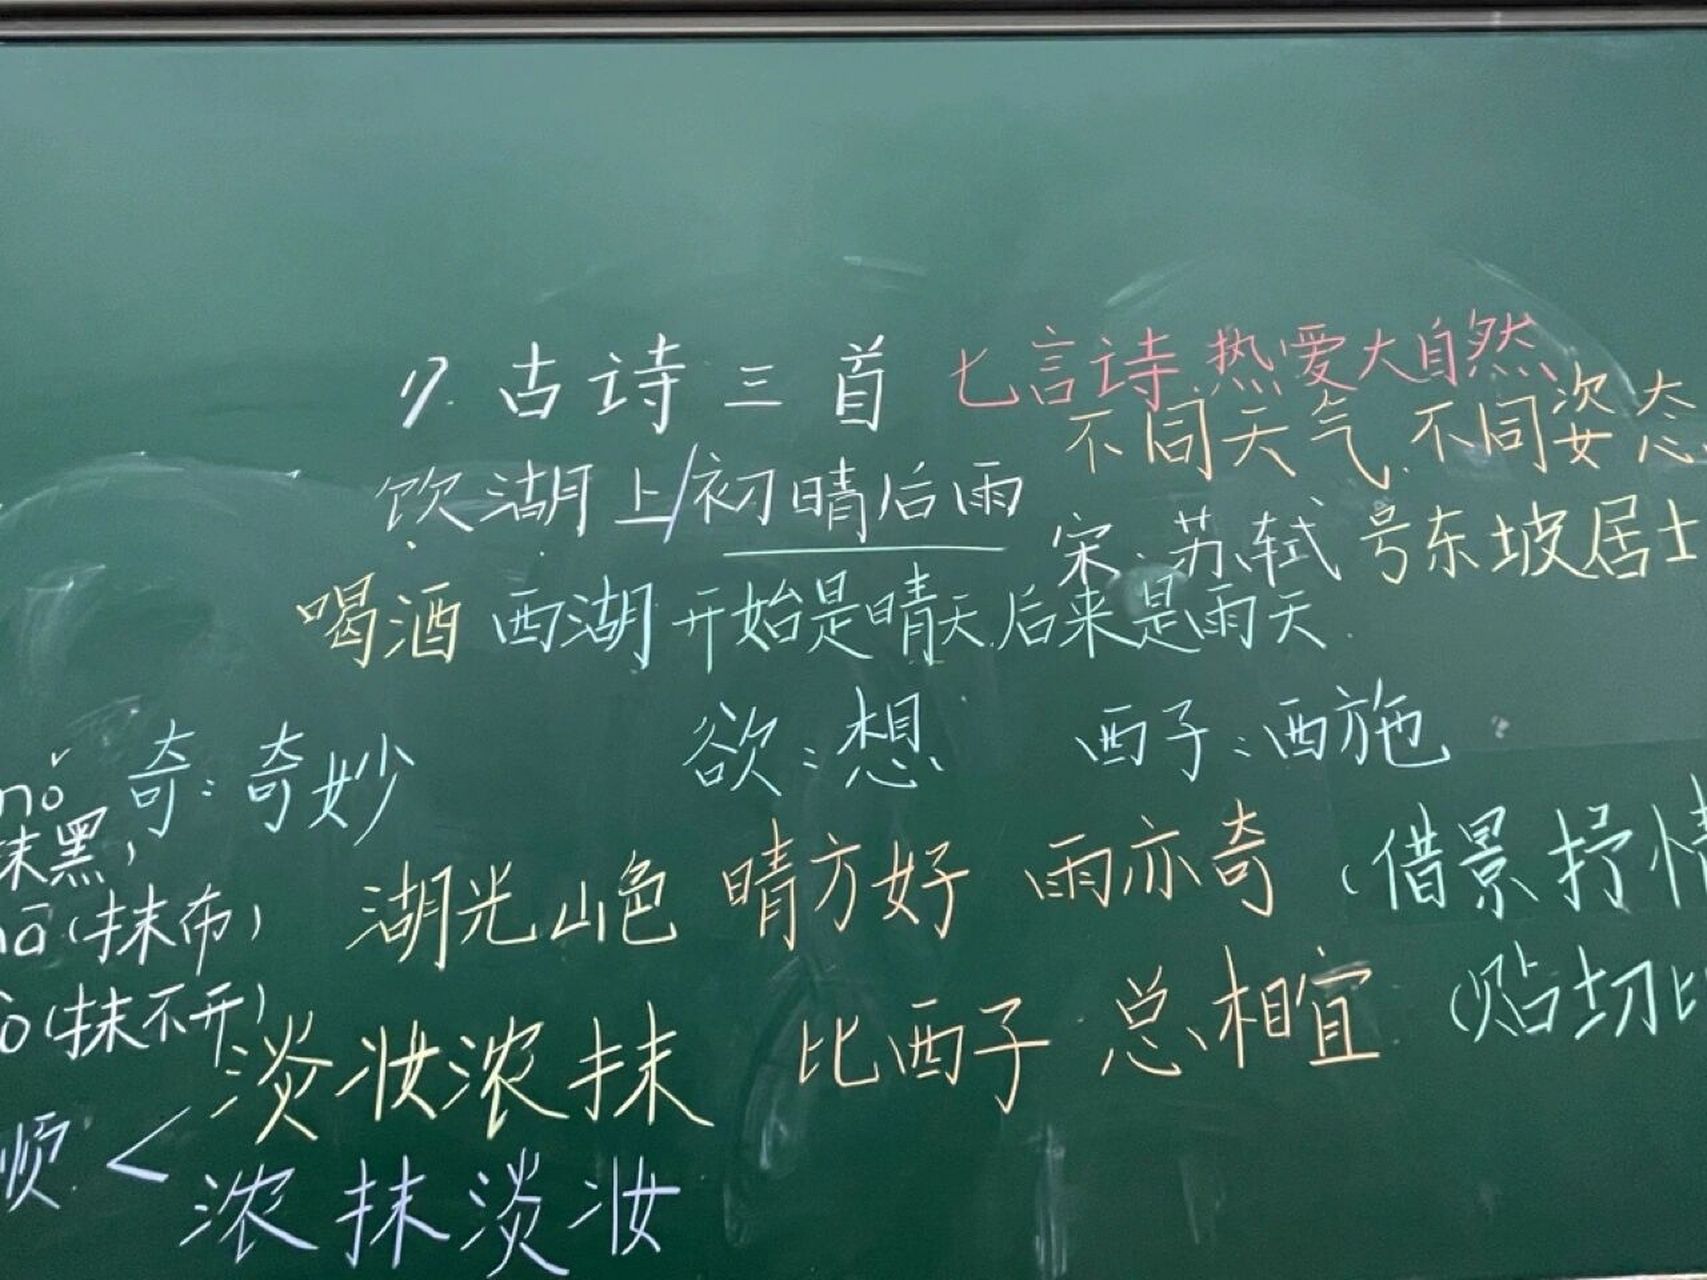 17. 古诗三首 七言诗 热爱大自然
不同天气 不同姿态
饮湖上/初晴后雨
宋·苏轼 号东坡居士
喝酒 西湖 开始是晴天 后来是雨天
奇:奇妙 欲:想 西子:西施
抹黑
湖光山色 晴方好 雨亦奇 (借景抒情
(抹布)
(抹不开)
淡妆浓抹 比西子 总相宜 (贴切比
<
浓抹淡妆